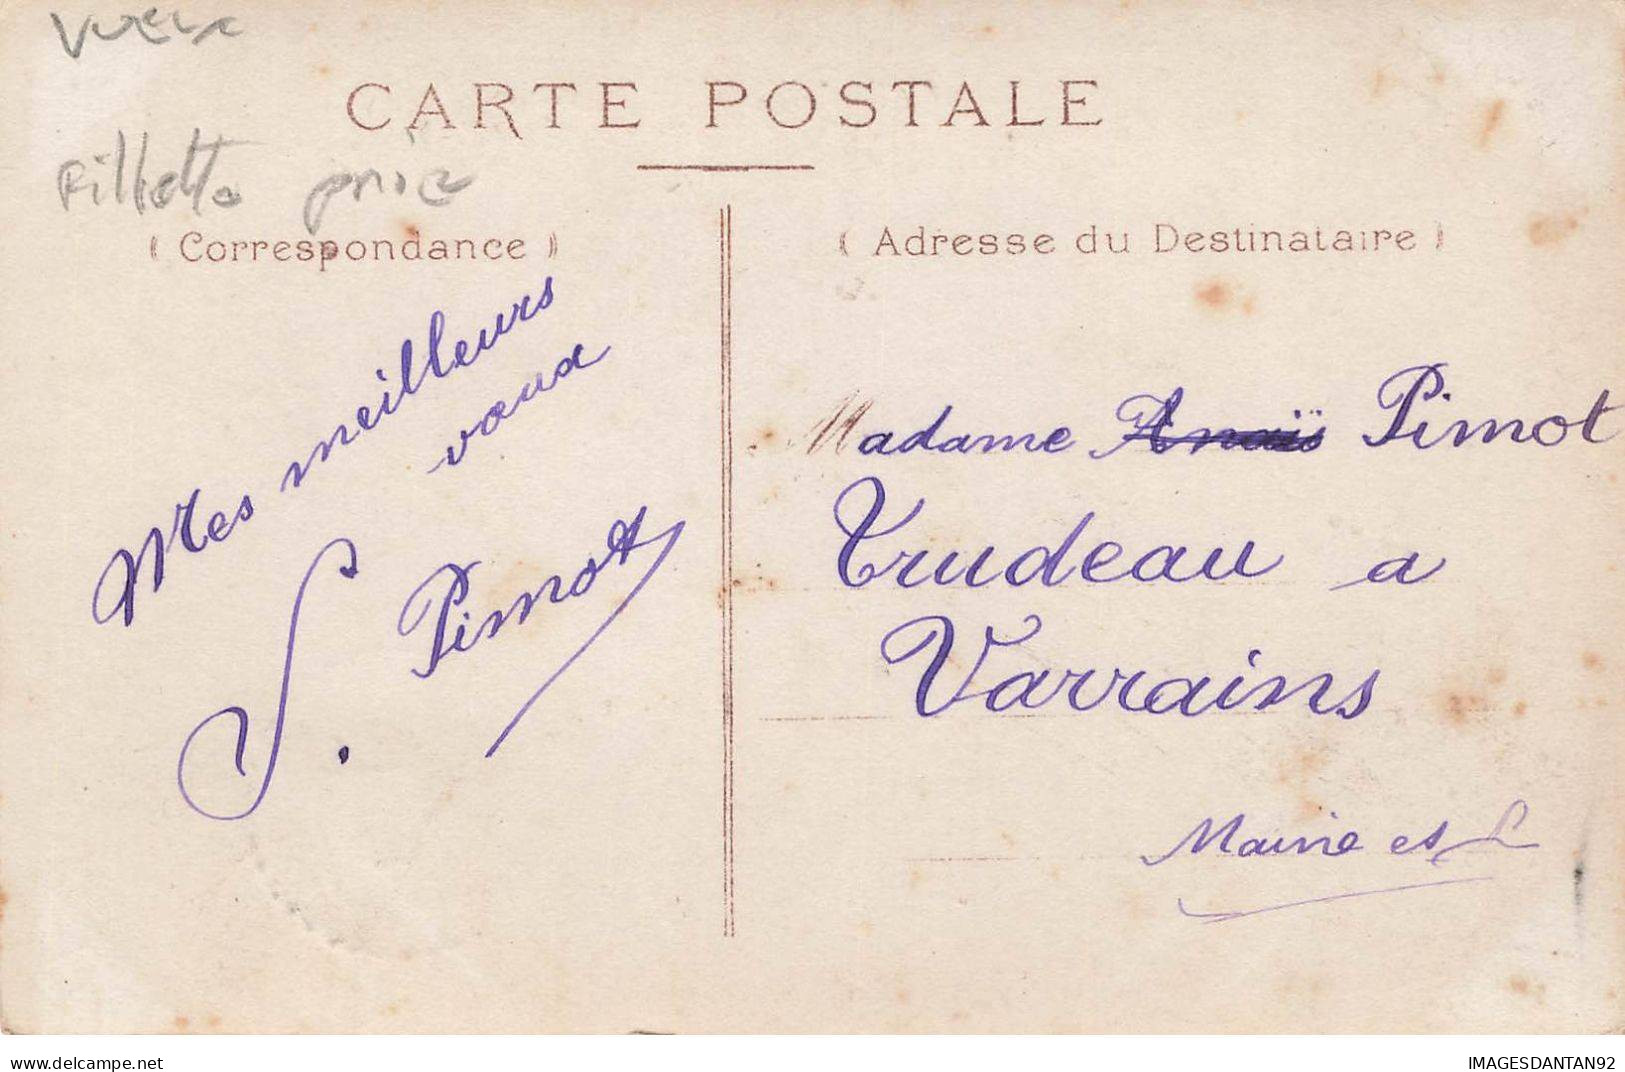 CARTE POSTALE
Fillette
( Correspondance )
( Adresse du Destinataire )
Mes meilleurs
vœux
S. Pimot
Madame Anaïs Pimot
Trudeau a
Varrains
Maine et L
delcampe.net
IMAGESDANTAN92